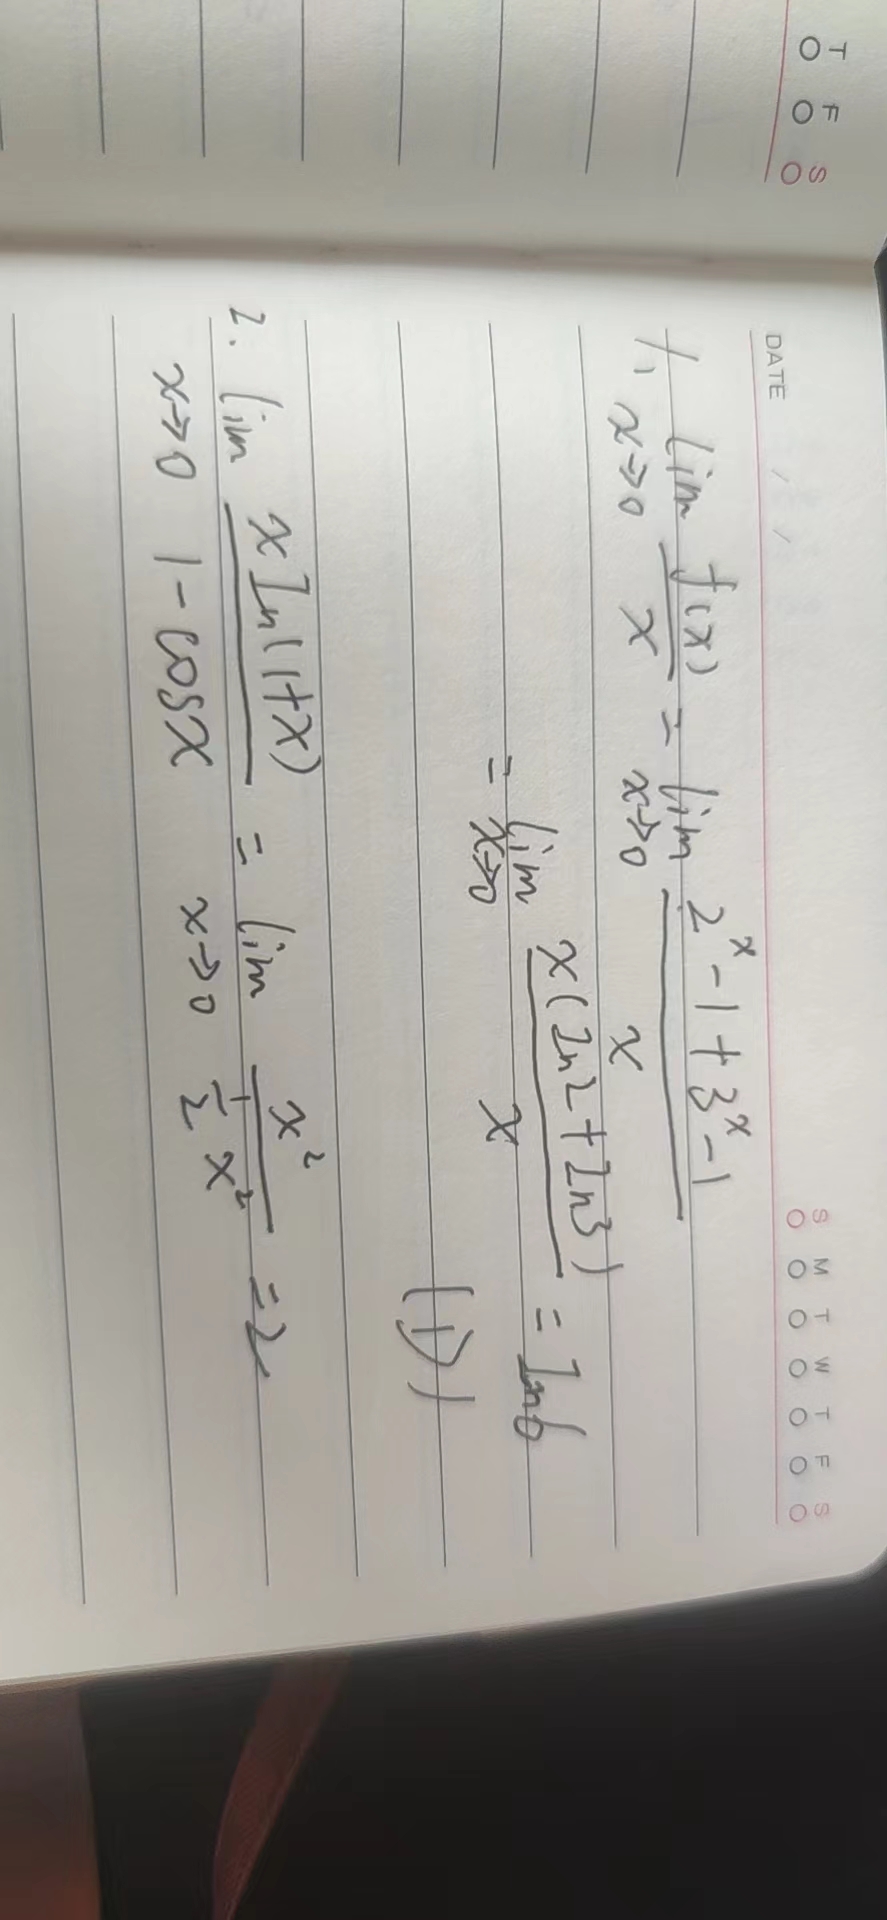 T F S
DATE / / S M T W T F S
1, lim x→0 f(x)/x = lim x→0 (2^x - 1 + 3^x - 1)/x
= lim x→0 x(ln2 + ln3)/x = ln6
(D)
2. lim x→0 x ln(1+x)/(1 - cosx) = lim x→0 x²/(½x²) = 2